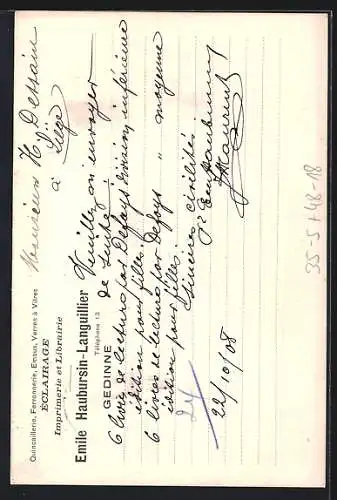 Quincaillerie, Ferronnerie, Emaux, Verres à Vitres
ÉCLAIRAGE
Imprimerie et Librairie
Emile Haubursin-Languillier
Téléphone 13
GEDINNE
Monsieur H Dessain
à Liège
Veuillez m'envoyer
de suite:
6 livres de lecture par Defays division inférieure
édition pour filles
6 livres de lecture par Defays " moyenne
édition pour filles
Sincères civilités
22/10/08
35-5+48-18